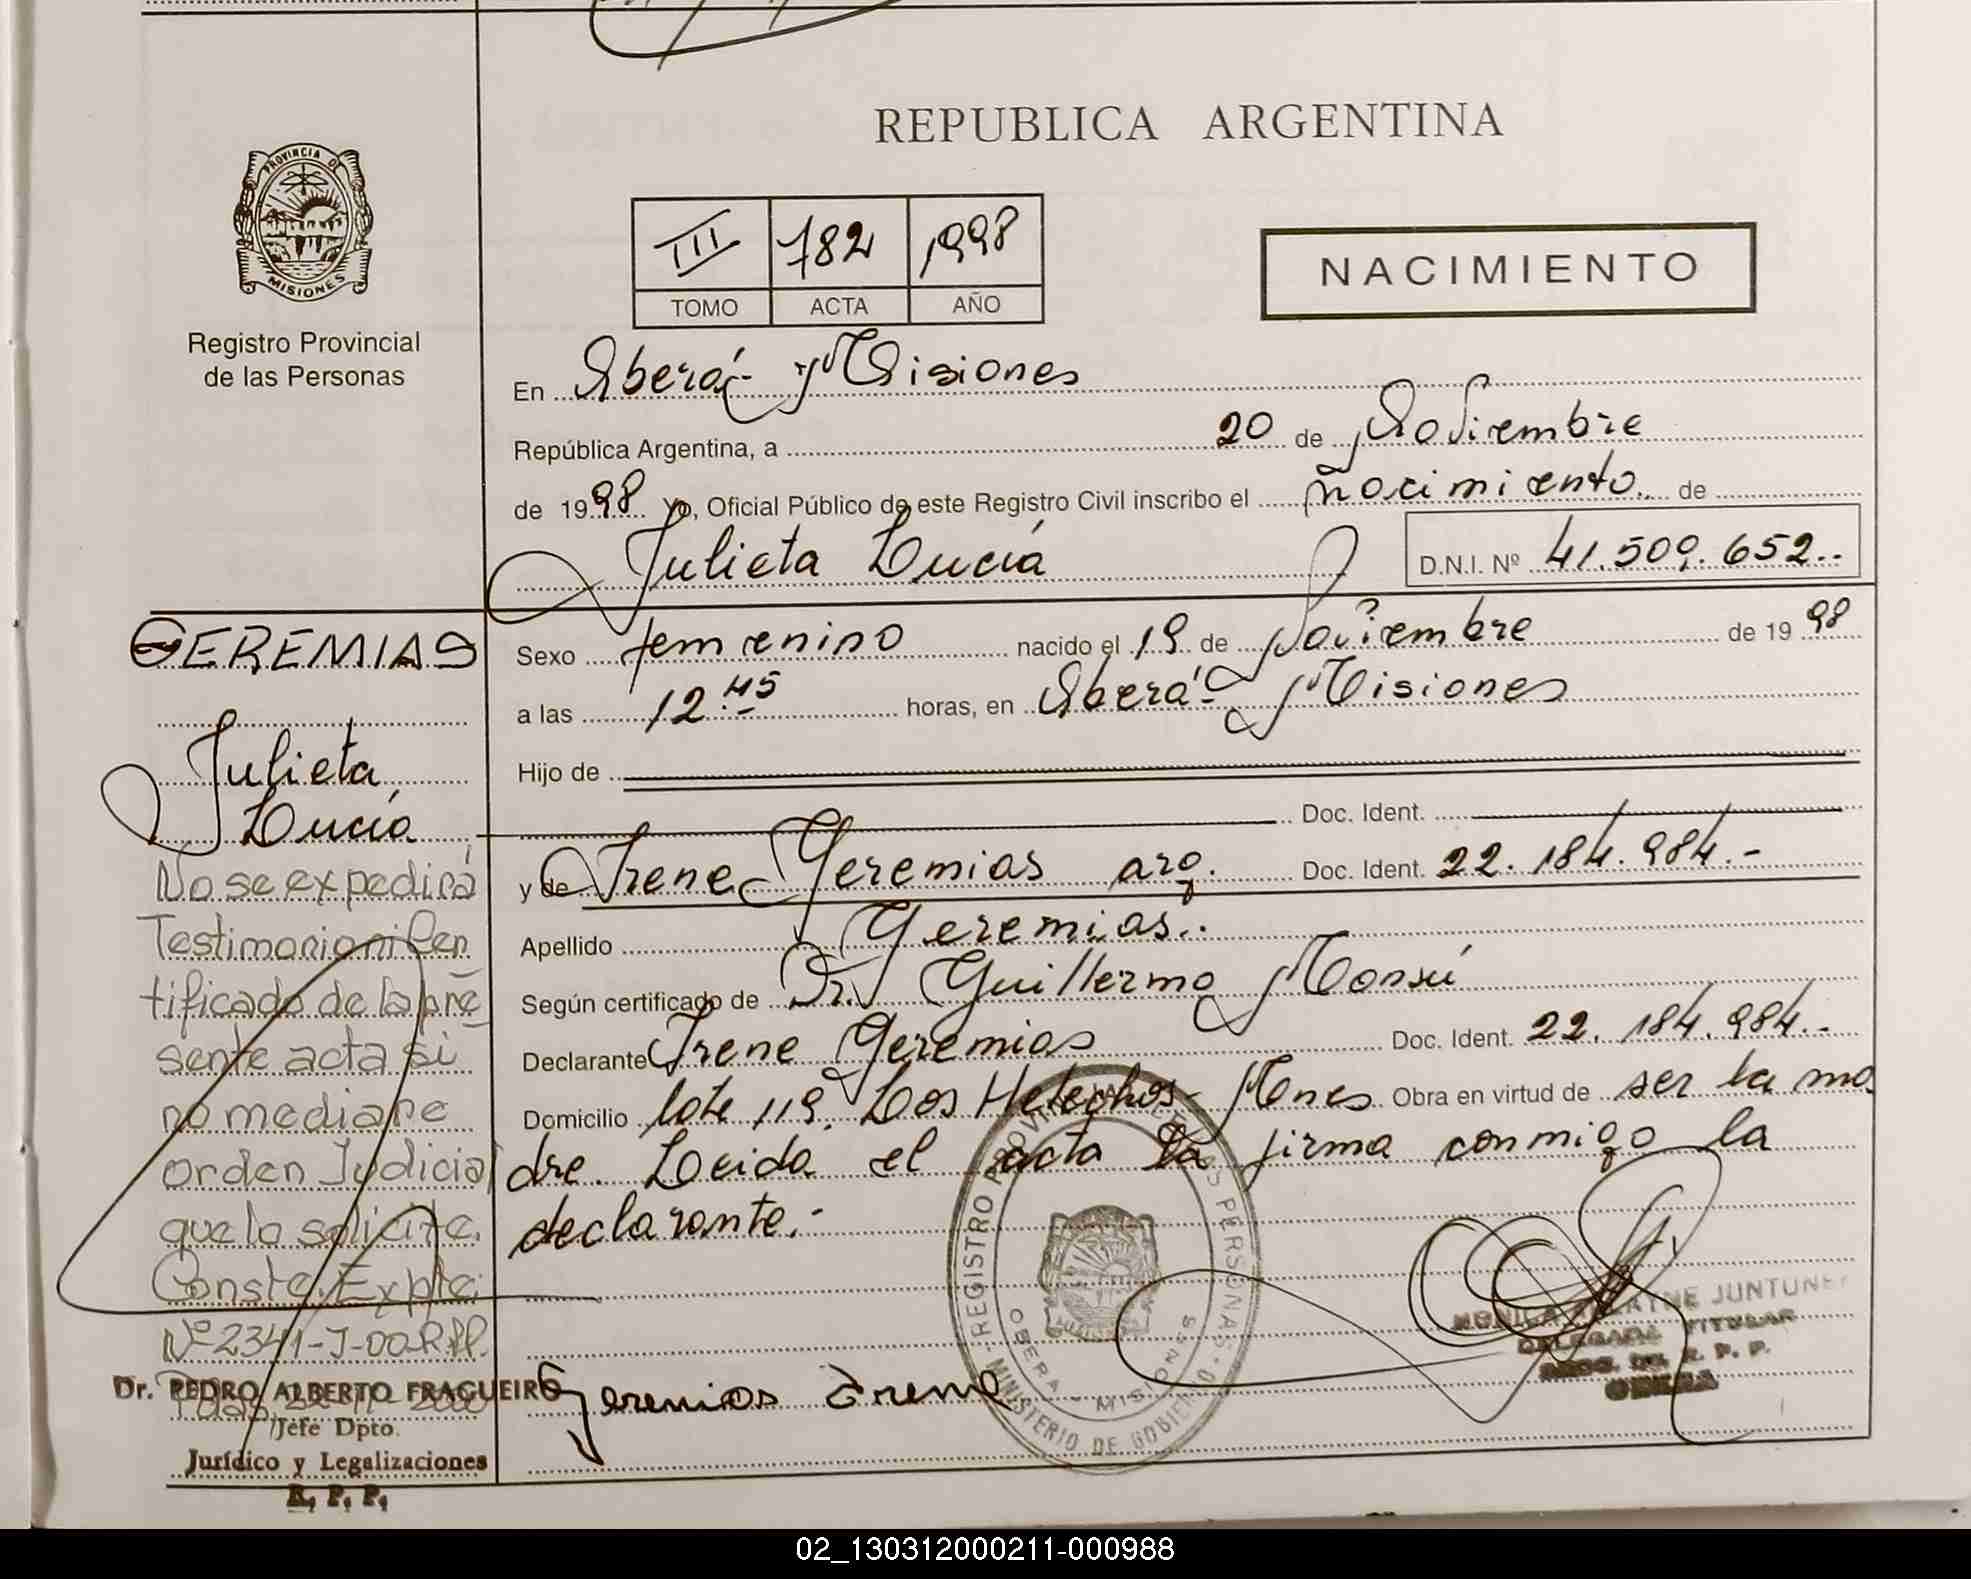 REPUBLICA ARGENTINA
PROVINCIA DE
MISIONES
Registro Provincial
de las Personas
III 782 1998
TOMO ACTA AÑO
NACIMIENTO
En Oberá - Misiones
República Argentina, a 20 de Noviembre
de 1998 Yo, Oficial Público de este Registro Civil inscribo el nacimiento de
Julieta Lucía D.N.I. Nº 41.509.652..
GEREMIAS
Julieta
Lucía
No se expedirá
Testimonio ni Cer
tificado de la pre
sente acta si
no mediare
orden Judicial
que lo solicite.
Conste. Expte:
Nº 2341-J-00
Dr. PEDRO ALBERTO FRAGUEIRO
Jefe Dpto.
Jurídico y Legalizaciones
R. P. P.
Sexo femenino nacido el 19 de Noviembre de 1998
a las 12.45 horas, en Oberá - Misiones
Hijo de
Doc. Ident.
y de Irene Geremias arg. Doc. Ident. 22.184.984.-
Apellido Geremias..
Según certificado de Dr. Guillermo Monsú
Declarante Irene Geremias Doc. Ident. 22.184.984.-
Domicilio lote 119. Los Helechos - Mnes Obra en virtud de ser la ma
dre. Leida el acta la firma conmigo la
declarante.-
REGISTRO PROVINCIAL DE LAS PERSONAS
OBERA - MISIONES
MINISTERIO DE GOBIERNO
Geremias Irene
JUNTUNE
DELEGADA TITULAR
R. P. P.
OBERA
02_130312000211-000988